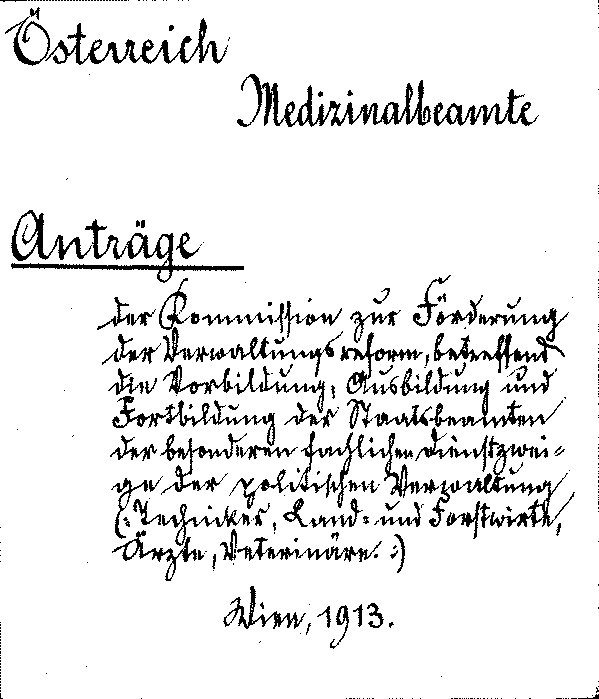 Österreich
Medizinalbeamte
Anträge
der Kommission zur Förderung
der Verwaltungsreform, betreffend
die Vorbildung, Ausbildung und
Fortbildung der Staatsbeamten
der besonderen fachlichen Dienstzwei-
ge der politischen Verwaltung
(: Techniker, Land- und Forstwirte,
Ärzte, Veterinäre. :)
Wien, 1913.